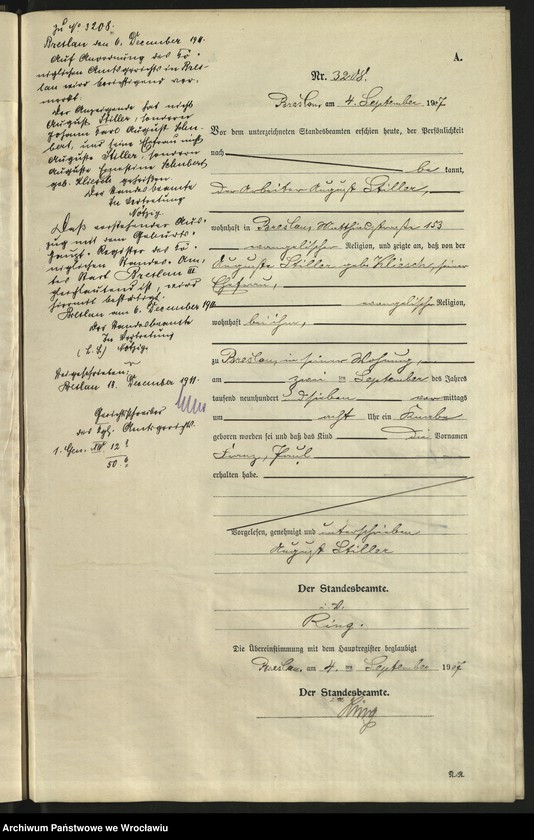 Zu No 3208.
Breslau den 6. December 1911.
Auf Anordnung des Kö-
niglichen Amtsgerichts in Bres-
lau wird berichtigend ver-
merkt.
Der Anzeigende hat nicht
August Stiller, sondern
Johann Karl August Schu-
bert, und seine Ehefrau nicht
Auguste Stiller, sondern
Auguste Ernestine Schubert
geb. Kliesch geheißen.
Der Standesbeamte
In Vertretung
Nötzig
Daß vorstehender Aus-
zug mit dem Geburts-
Haupt-Register des Kö-
niglichen Standes-Am-
tes Stadt Breslau III
gleichlautend ist, wird
hiermit bestätigt.
Breslau am 6. December 1911
Der Standesbeamte
In Vertretung
(L.S.) Nötzig.
Breslau 18. December 1911.
Gerichtsschreiber
des Kgl. Amtsgerichts.
A.
Nr. 3208.
Breslau, am 4. September 1907
Vor dem unterzeichneten Standesbeamten erschien heute, der Persönlichkeit
nach be kannt,
der Arbeiter August Stiller,
wohnhaft in Breslau, Matthiasstraße 153
evangelischer Religion, und zeigte an, daß von der
Auguste Stiller geb. Kliesch, seiner
Ehefrau,
evangelischer Religion,
wohnhaft bei ihm,
zu Breslau, in seiner Wohnung,
am zwei ten September des Jahres
tausend neunhundert und sieben vor mittags
um acht Uhr ein Knabe
geboren worden sei und daß das Kind die Vornamen
Franz, Paul
erhalten habe.
Vorgelesen, genehmigt und unterschrieben
August Stiller
Der Standesbeamte.
i. V.
Ring.
Die Übereinstimmung mit dem Hauptregister beglaubigt
Breslau, am 4. ten September 1907
Der Standesbeamte.
Ring
R.R.
Archiwum Państwowe we Wrocławiu